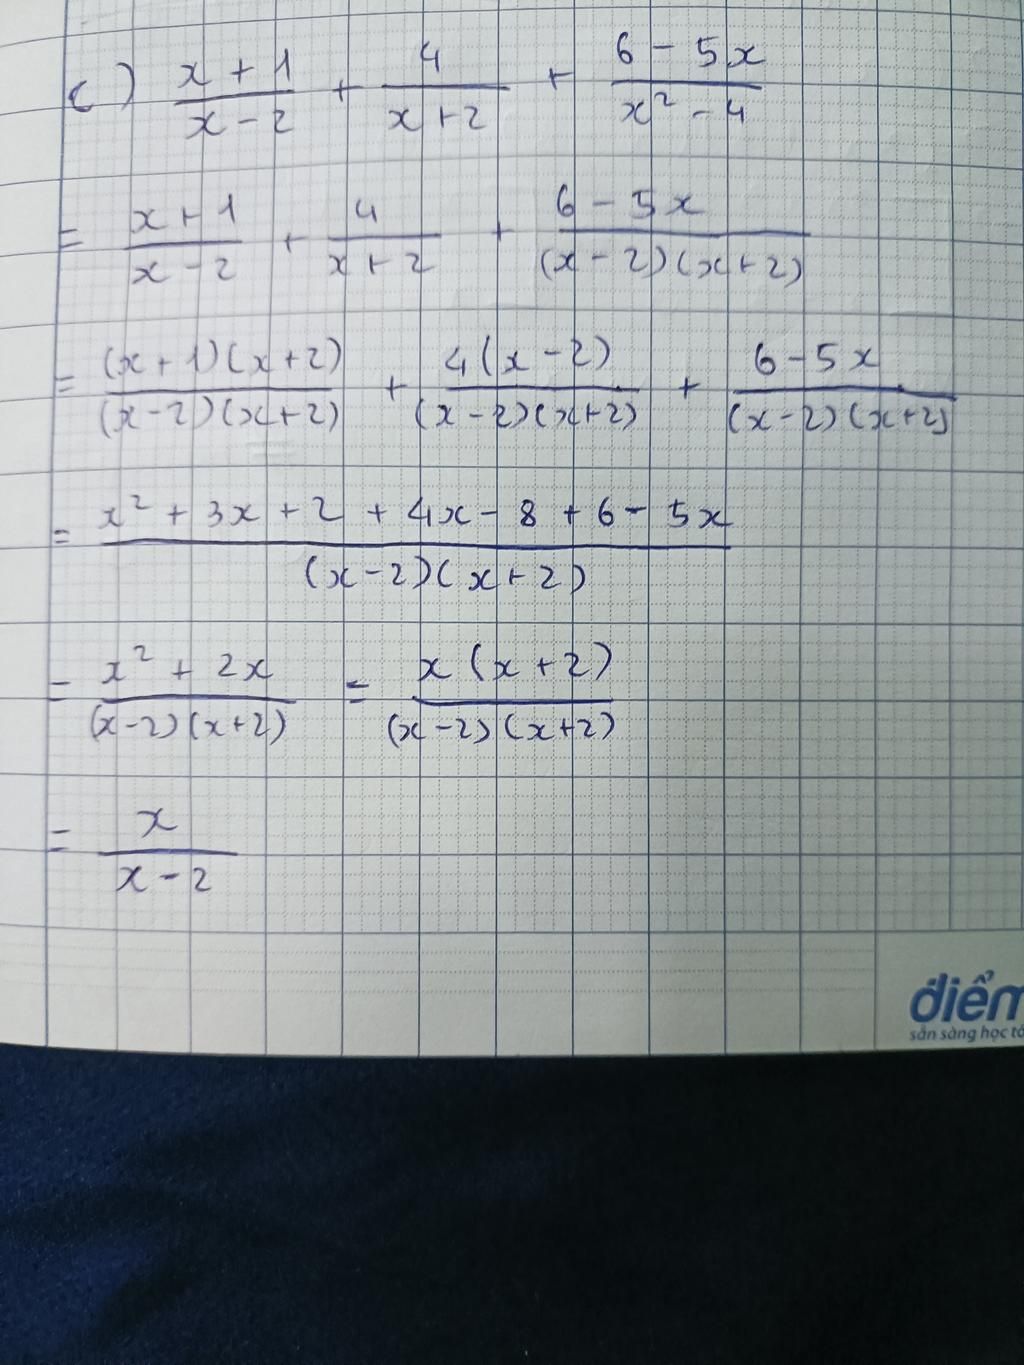 c) (x + 1)/(x - 2) + 4/(x + 2) + (6 - 5x)/(x² - 4)
= (x + 1)/(x - 2) + 4/(x + 2) + (6 - 5x)/((x - 2)(x + 2))
= ((x + 1)(x + 2))/((x - 2)(x + 2)) + (4(x - 2))/((x - 2)(x + 2)) + (6 - 5x)/((x - 2)(x + 2))
= (x² + 3x + 2 + 4x - 8 + 6 - 5x)/((x - 2)(x + 2))
= (x² + 2x)/((x - 2)(x + 2)) = (x(x + 2))/((x - 2)(x + 2))
= x/(x - 2)
điểm
sẵn sàng học